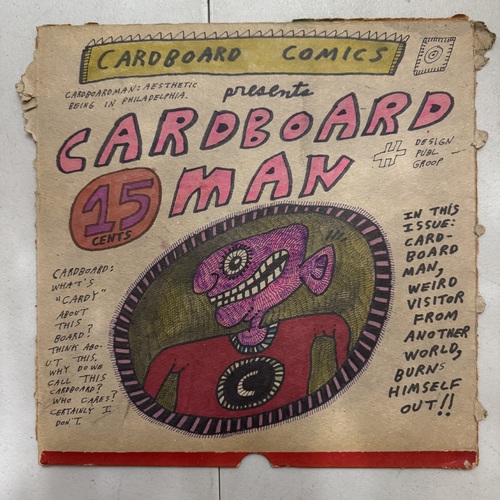 CARDBOARD COMICS
CARDBOARDMAN: AESTHETIC
BEING IN PHILADELPHIA.
presents
CARDBOARD
MAN
DESIGN
PUBL
GROOP
15
CENTS
IN THIS
ISSUE:
CARD-
BOARD
MAN,
WEIRD
VISITOR
FROM
ANOTHER
WORLD,
BURNS
HIMSELF
OUT!!
CARDBOARD:
WHAT'S
"CARDY"
ABOUT
THIS
BOARD?
THINK ABO-
UT THIS,
WHY DO WE
CALL THIS
CARDBOARD?
WHO CARES?
CERTAINLY I
DON'T.
C